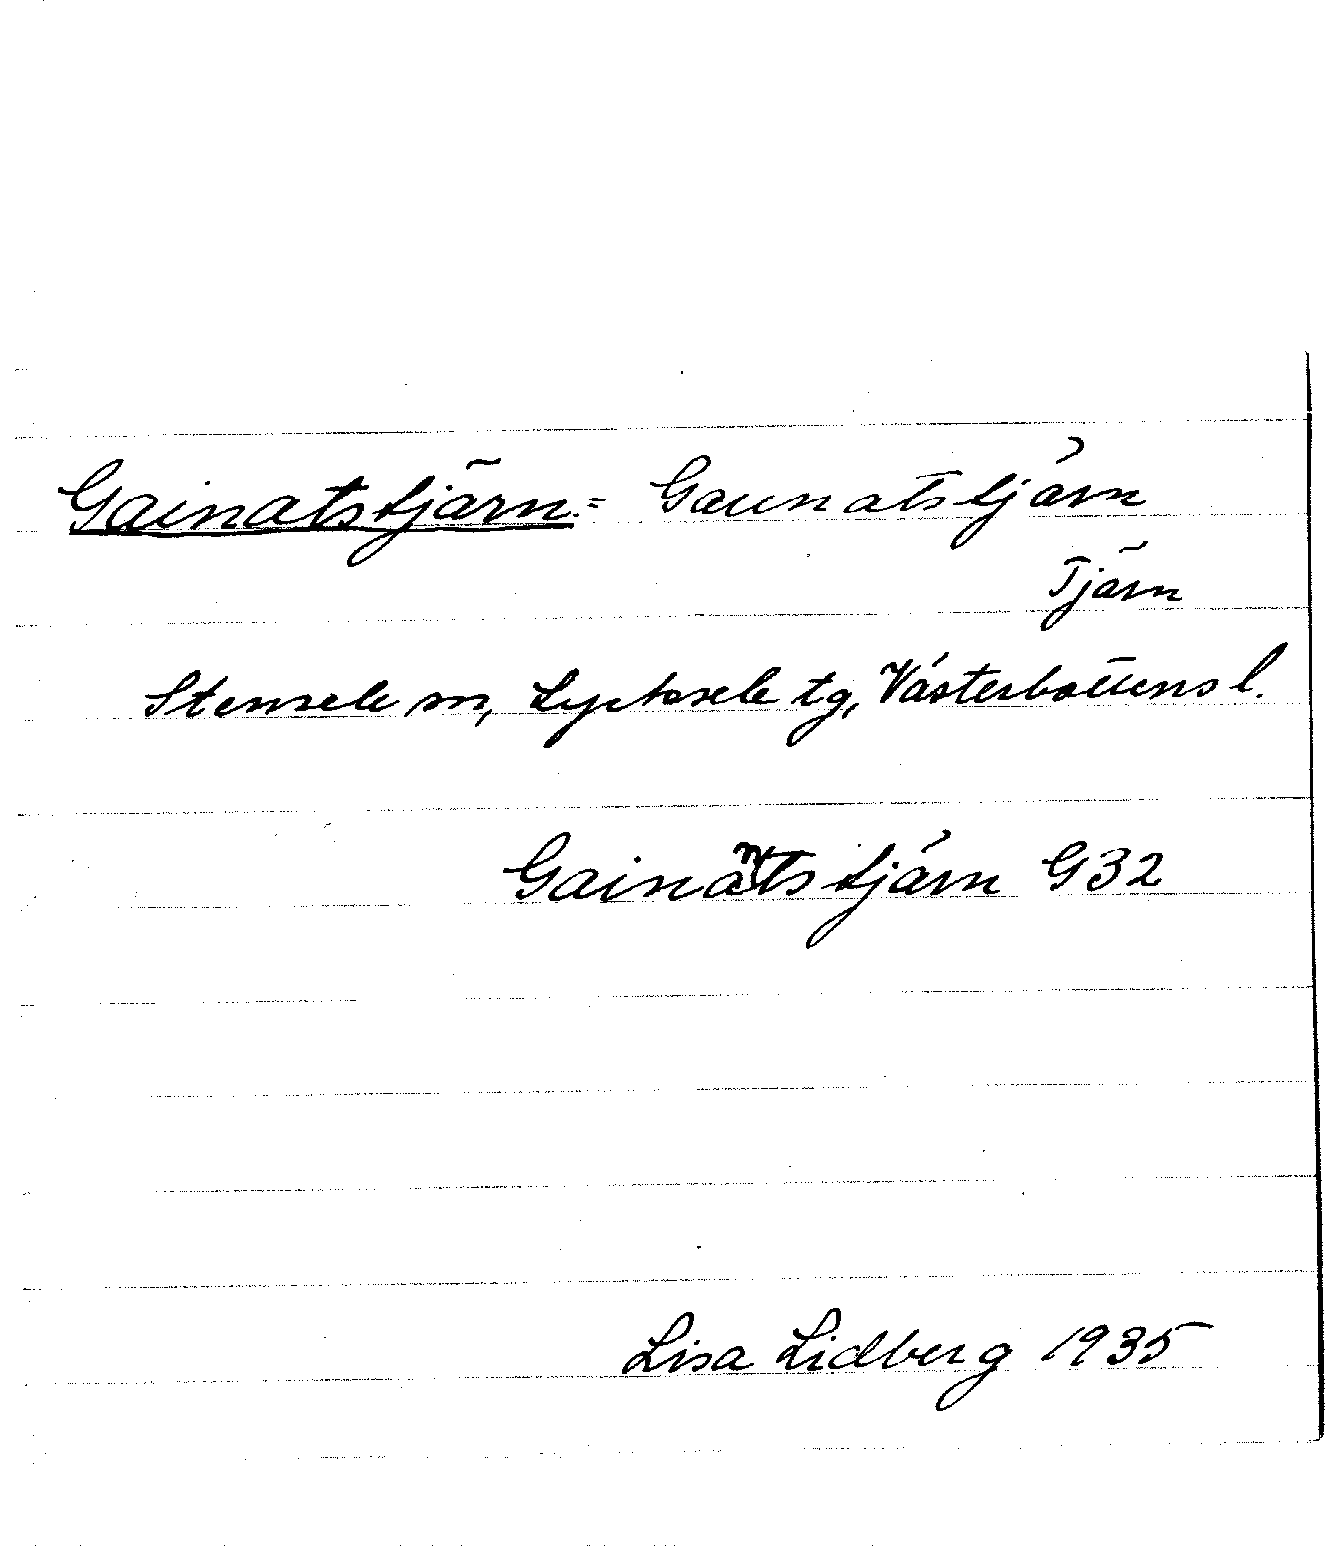 Gainatstjärn.= Gaunatstjärn
Tjärn
Stensele sn, Lycksele tg, Västerbottens l.
Gainatstjärn G32
Lisa Lidberg 1935